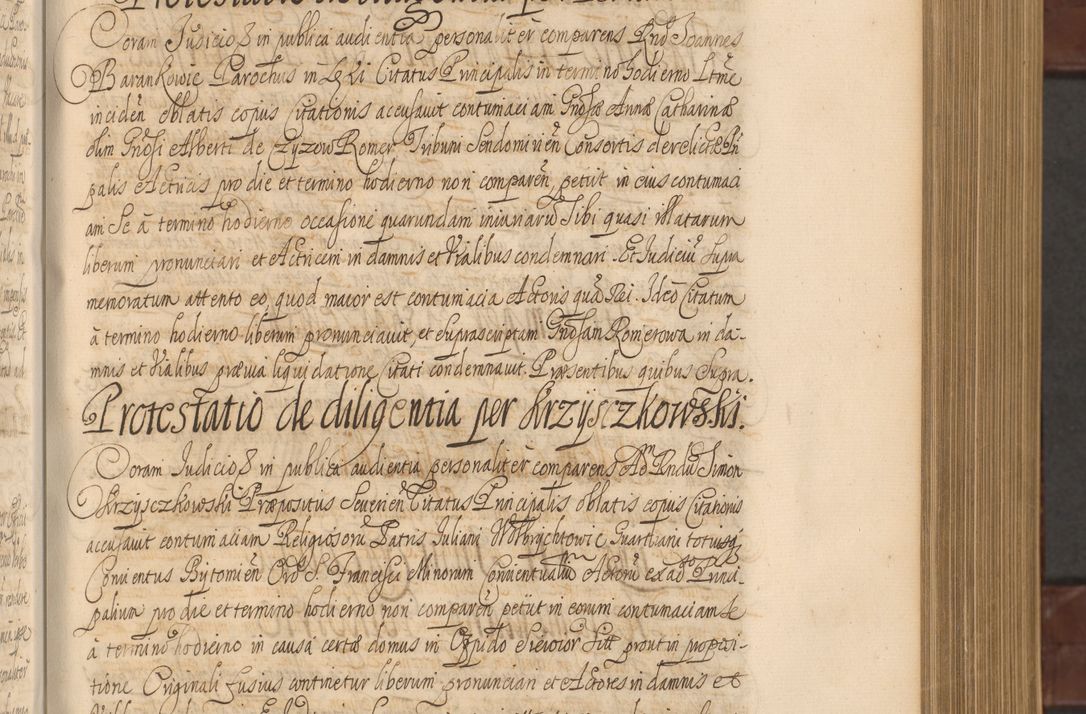 Coram Judicio S in publica audientia personaliter comparens Rnd Joannes
Barankowic Parochus in Citatus Principalis in termino hodierno Ltme
inciden oblatis copiis Citationis accusavit contumaciam Gnosae Annae Catharinae
olim Gnosi Alberti de Zyzow Romer Tribuni Sendomirien Consortis derelictae
palis Actricis pro die et termino hodierno non comparen, petiit in eius contumaci
am Se à termino hodierno occasione quarundam iniuriarũ Sibi quasi illatarum
liberum pronunciari et Actricem in damnis et Xialibus condemnari. Et Judiciũ Supra
memoratum attento eo, quod maior est contumacia Actoris quã Rei. Ideo Citatum
à termino hodierno liberum pronunciavit, et Suprascriptam Gnosam Romerowa in da-
mnis et Xialibus praevia liquidatione Citati condemnavit. Praesentibus quibus Supra.
Protestatio de diligentia per Krzysczkowski.
Coram Judicio S in publica audientia personaliter comparens Adm Rndũ Simon
Krzysczkowski Praepositus Severien Citatus Principalis oblatis copiis Citationis
accusavit contumaciam Religiosorũ Patris Juliani Wolbrychtowic Guardiani totiusq
Conventus Bytomien Ord S. Francisci Minorum Conventualiũ Actorũ ex ad Princi-
palium pro die et termino hodierno non comparen petiit in eorum contumaciam Se
à termino hodierno in causa certae domus in Oppido Siewior Sitt prout in proposi-
tione Originali fusius continetur liberum pronunciari et Actores in damnis et